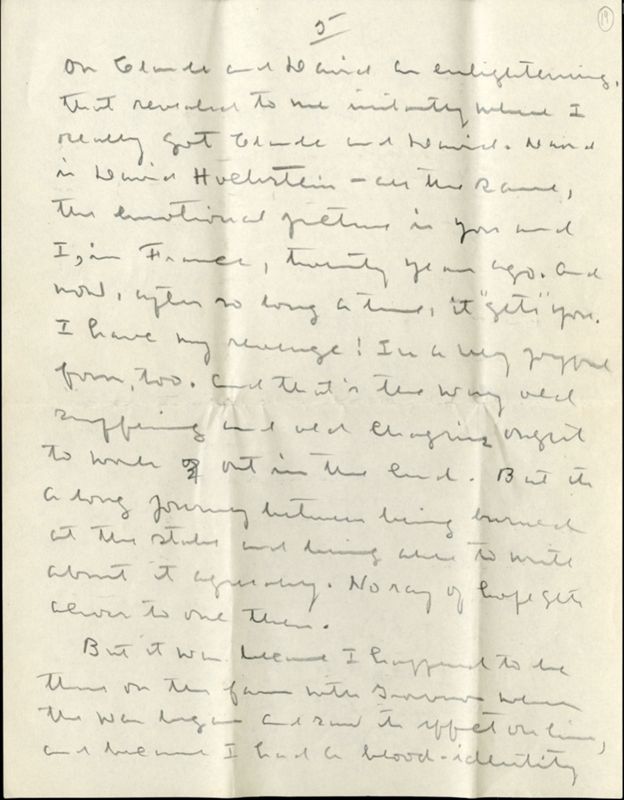 5
19
on Claude and David an enlightening,
that revealed to me instantly where I
really got Claude and David. David
is David Hochstein – all the same,
the emotional picture is you and
I, in France, twenty years ago. And
now, after so long a time, it "gets" you.
I have my revenge! In a very joyful
form, too. And that's the way old
suffering and old chagrins ought
to work out in the end. But its
a long journey between being burned
at the stake and being able to write
about it agreeably. No ray of hope gets
across to one then.
But it was because I happened to be
there on the farm with Grosvenor when
the war began and saw its effect on him,
and because I had a blood-identity